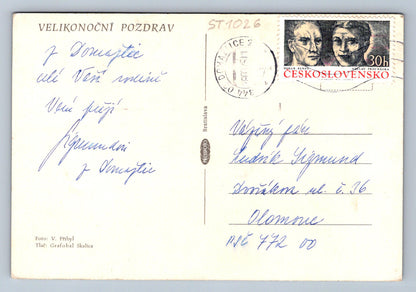 VELIKONOČNÍ POZDRAV
ST1026
z Domažlic
celé Vaší rodině
Vám přejí -
Zigmundovi
z Domažlic
Foto: V. Přibyl
Tlač: Grafobal Skalica
Bratislava
DOMAŽLICE 2
344 20
30h
ČESKOSLOVENSKO
Vážený pán
Ludvík Zigmund
Dvořákova ul. č. 36
Olomouc
PSČ 772 00